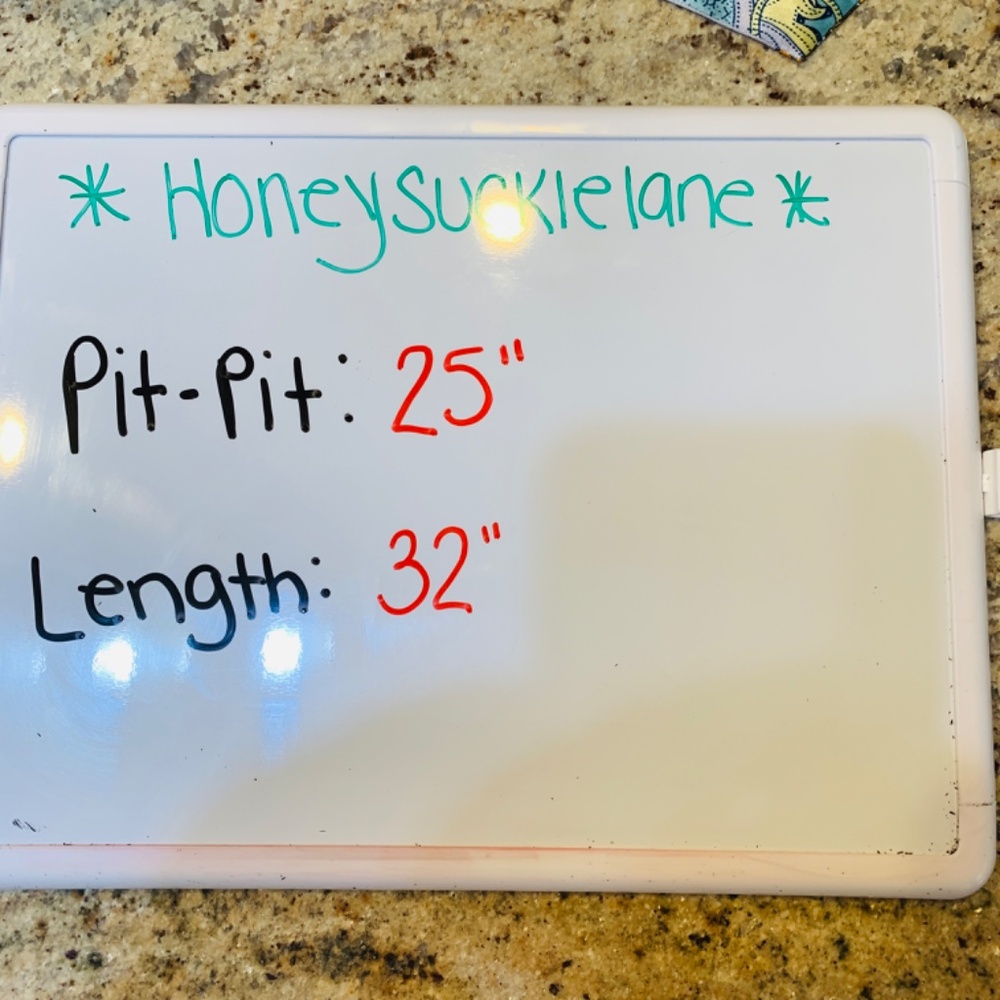 * Honeysucklelane *
Pit-Pit: 25"
Length: 32"